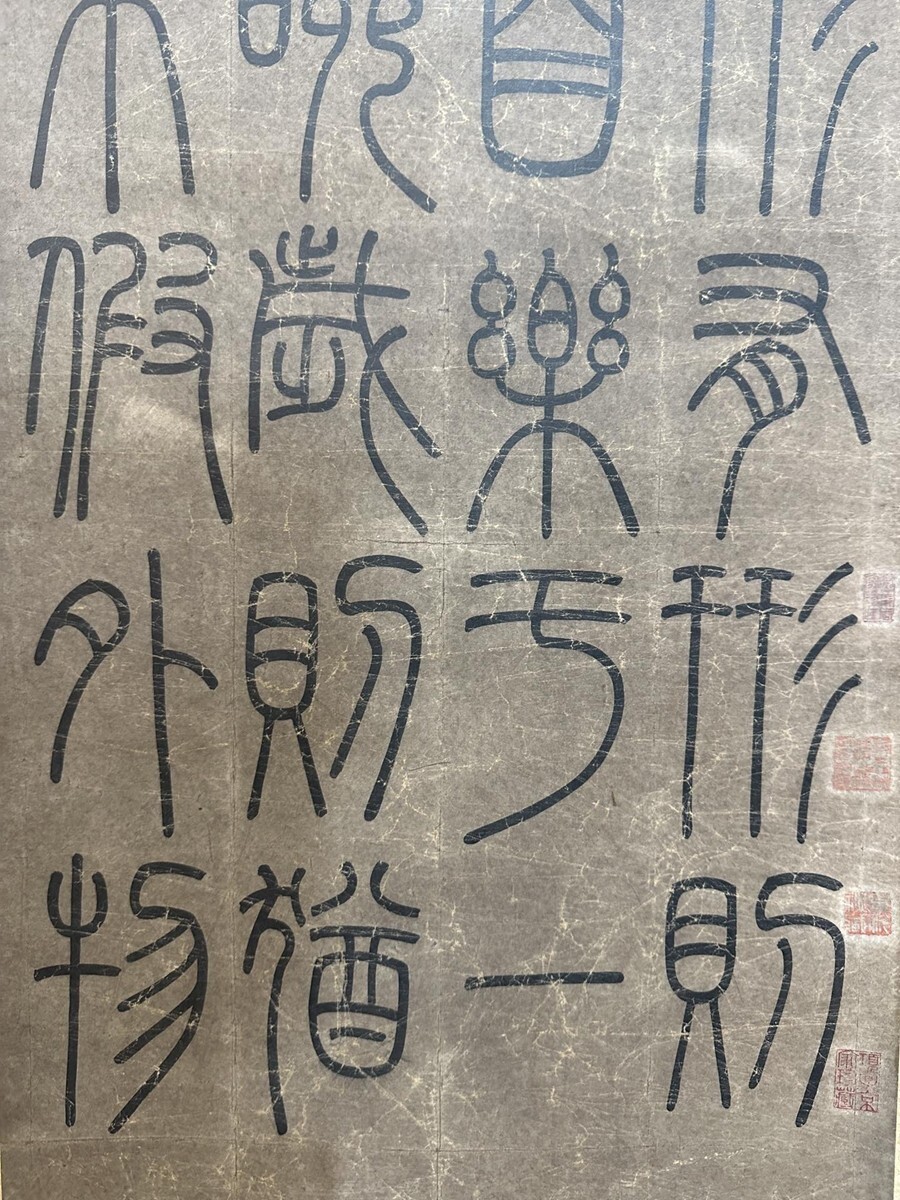 形有形則
自樂于一
歲則猶
不假外物